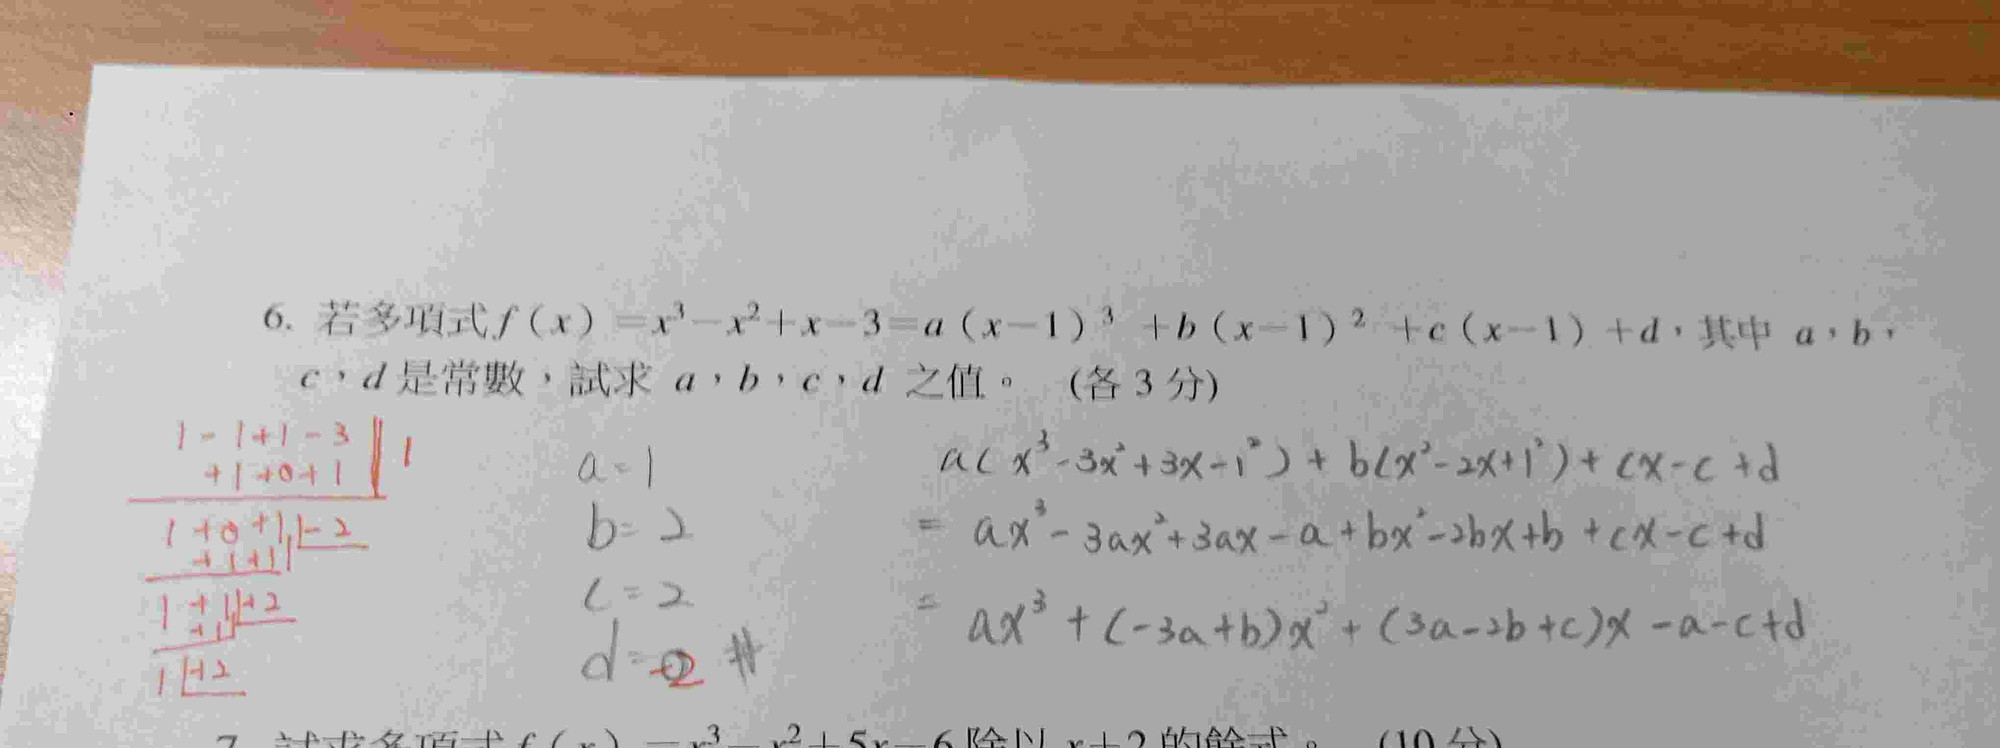 6. 若多項式f(x)=x³-x²+x-3=a(x-1)³+b(x-1)²+c(x-1)+d,其中 a,b,
c,d是常數,試求 a,b,c,d 之值。 (各3分)
1-1+1-3 | 1
+1+0+1
1+0+1 -2
+1+1
1+1 +2
+1
1 +2
a=1
b=2
c=2
d=-2 #
a(x³-3x²+3x-1³)+b(x²-2x+1²)+cx-c+d
= ax³-3ax²+3ax-a+bx²-2bx+b+cx-c+d
= ax³+(-3a+b)x²+(3a-2b+c)x-a-c+d
7. 試求多項式f(x)=x³-x²+5x-6除以x+2的餘式。 (10分)